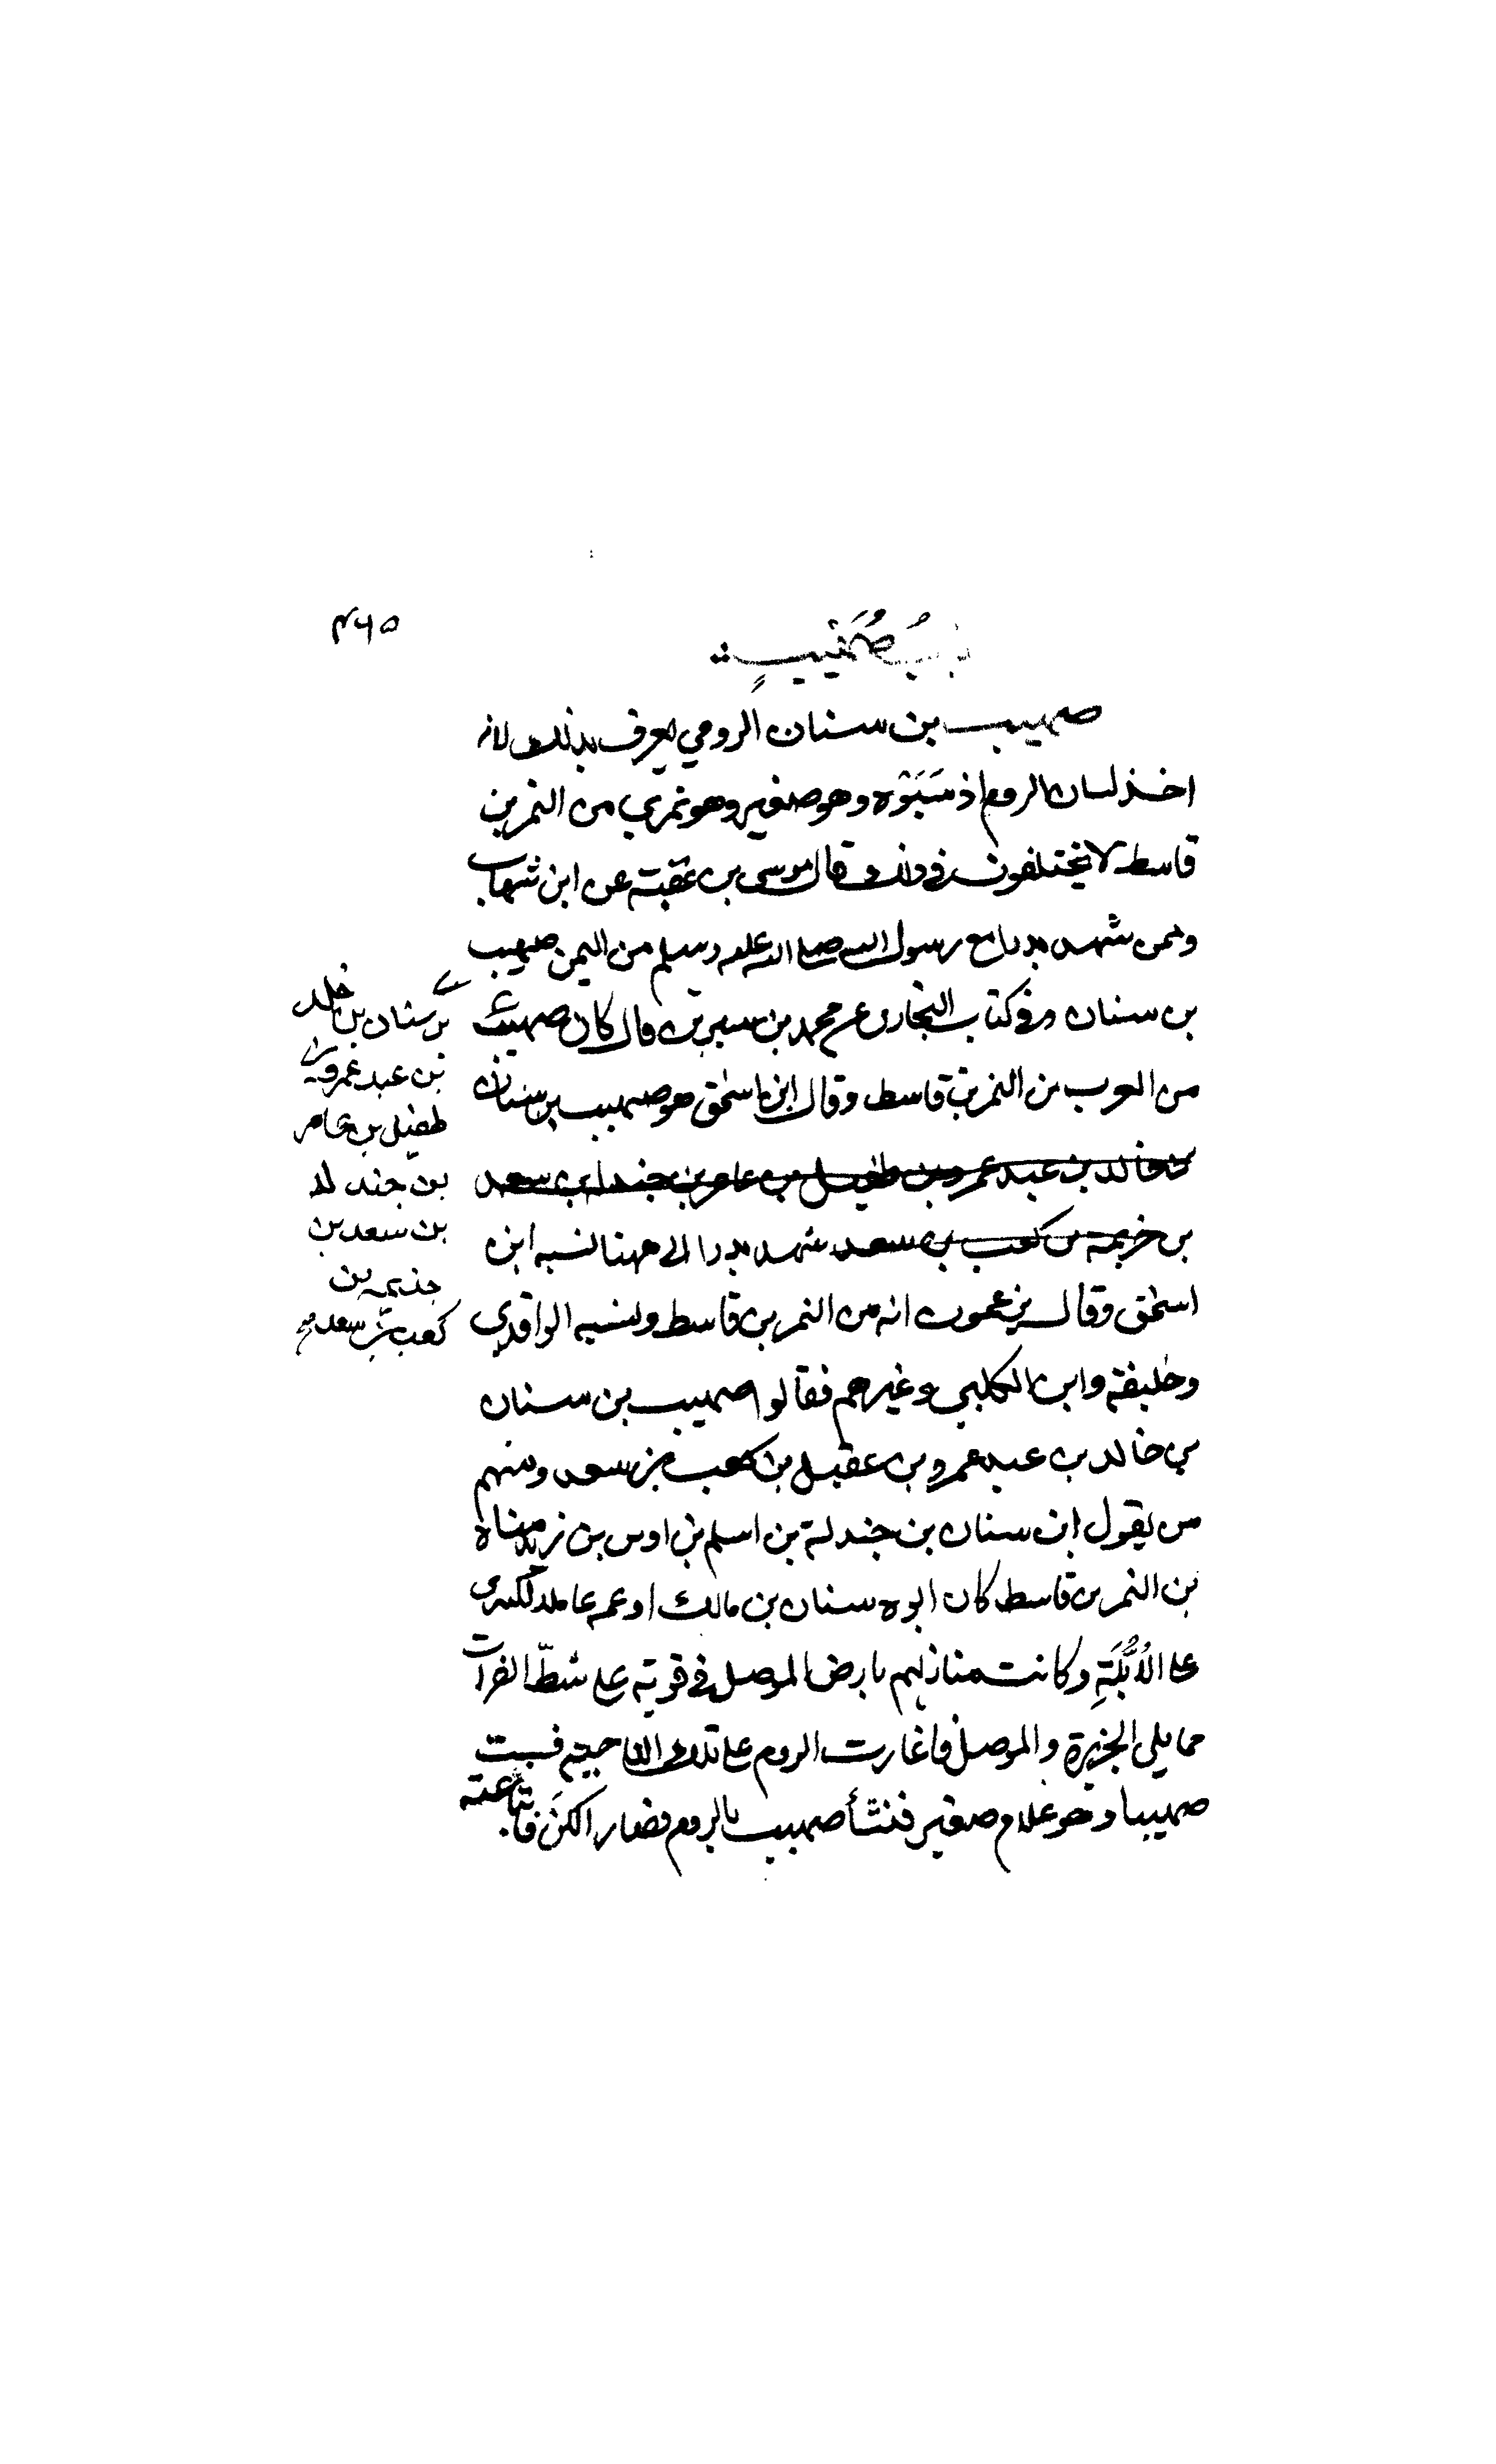 ٤٦٥
باب صُهَيبٍ
صهيب بن سنان الرومي يعرف بذلك لانه
اخذ لسان الروم اذ سَبَوْه وهو صغير وهو نمري من النمر بن
قاسط لا يختلفون في ذلك قال موسى بن عقبة عن ابن شهاب
وممن شهد بدرا مع رسول الله صلى الله عليه وسلم من النمر صهيب
بن سنان وفي كتاب البخاري عن محمد بن سيرين قال كان صهيب
من العرب من النمر بن قاسط وقال ابن اسحق هو صهيب بن سنان
بن خالد بن عبد عمرو بن طفيل بن عامر بن جندلة بن سعد
بن خزيمة بن كعب بن سعد شهد بدرا الى ههنا نسبه ابن
اسحق وقال يزعمون انه من النمر بن قاسط ونسبه الواقدي
وخليفة وابن الكلبي وغيرهم فقالوا صهيب بن سنان
بن خالد بن عبد عمرو بن عقيل بن كعب بن سعد ومنهم
من يقول ابن سنان بن جندلة بن اسلم بن اوس بن زيد مناة
بن النمر بن قاسط كان ابوه سنان بن مالك او عمه عاملا لكسرى
على الأُبُلَّةِ وكانت منازلهم بارض الموصل في قرية على شطّ الفرات
مما يلي الجزيرة والموصل فاغارت الروم على تلك الناحية فسبت
صهيبا وهو غلام صغير فنشأ صهيب بالروم فصار الكنَ فابتاعته
بن سنان بن خلد
بن عبد عمرو بن
طفيل بن عامر
بن جندلة
بن سعد بن
جذيمه بن
كعب بن سعد صح